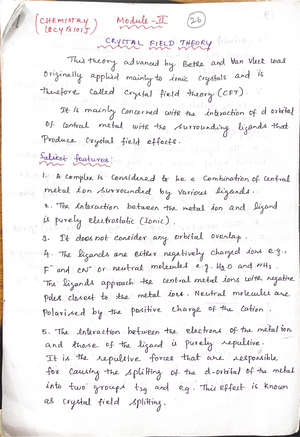 (CHEMISTRY) Module-II (26)
(BCYB101)
CRYSTAL FIELD THEORY
This theory advanced by Bethe and Van Vleck was
originally applied mainly to ionic crystals and is
therefore called Crystal field theory (CFT)
It is mainly concerned with the interaction of d orbital
of central metal with the surrounding ligands that
Produce Crystal field effects.
Salient features:
1. A complex is Considered to be a Combination of Central
metal ion surrounded by various ligands.
2. The interaction between the metal ion and ligand
is purely electrostatic (ionic).
3. It does not consider any orbital overlap.
4. The ligands are either negatively charged ions e.g.,
F⁻ and CN⁻ or neutral molecules e.g. H2O and NH3.
The ligands approach the central metal ions with negative
poles closest to the metal ions. Neutral molecules are
Polarised by the positive charge of the Cation.
5. The Interaction between the electrons of the metal ion
and those of the ligand is purely repulsive.
It is the repulsive forces that are responsible
for Causing the splitting of the d-orbital of the metal
into two groups t2g and eg. This effect is known
as crystal field splitting.